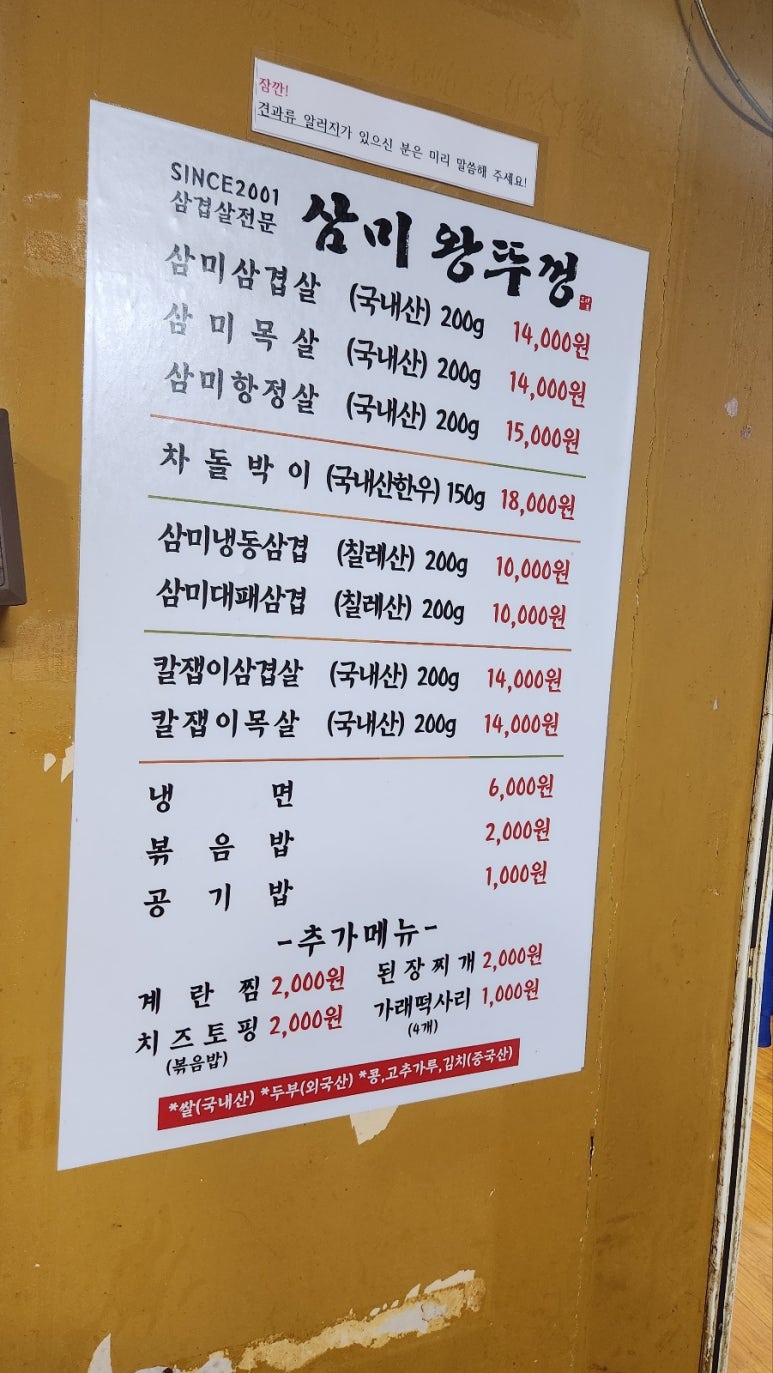 잠깐!
견과류 알러지가 있으신 분은 미리 말씀해 주세요!
SINCE2001
삼겹살전문
삼미 왕뚜껑
삼미삼겹살 (국내산) 200g 14,000원
삼미목살 (국내산) 200g 14,000원
삼미항정살 (국내산) 200g 15,000원
차돌박이 (국내산한우) 150g 18,000원
삼미냉동삼겹 (칠레산) 200g 10,000원
삼미대패삼겹 (칠레산) 200g 10,000원
칼잽이삼겹살 (국내산) 200g 14,000원
칼잽이목살 (국내산) 200g 14,000원
냉면 6,000원
볶음밥 2,000원
공기밥 1,000원
-추가메뉴-
계란찜 2,000원 된장찌개 2,000원
치즈토핑 2,000원 가래떡사리 1,000원
(볶음밥) (4개)
*쌀(국내산) *두부(외국산) *콩,고추가루,김치(중국산)